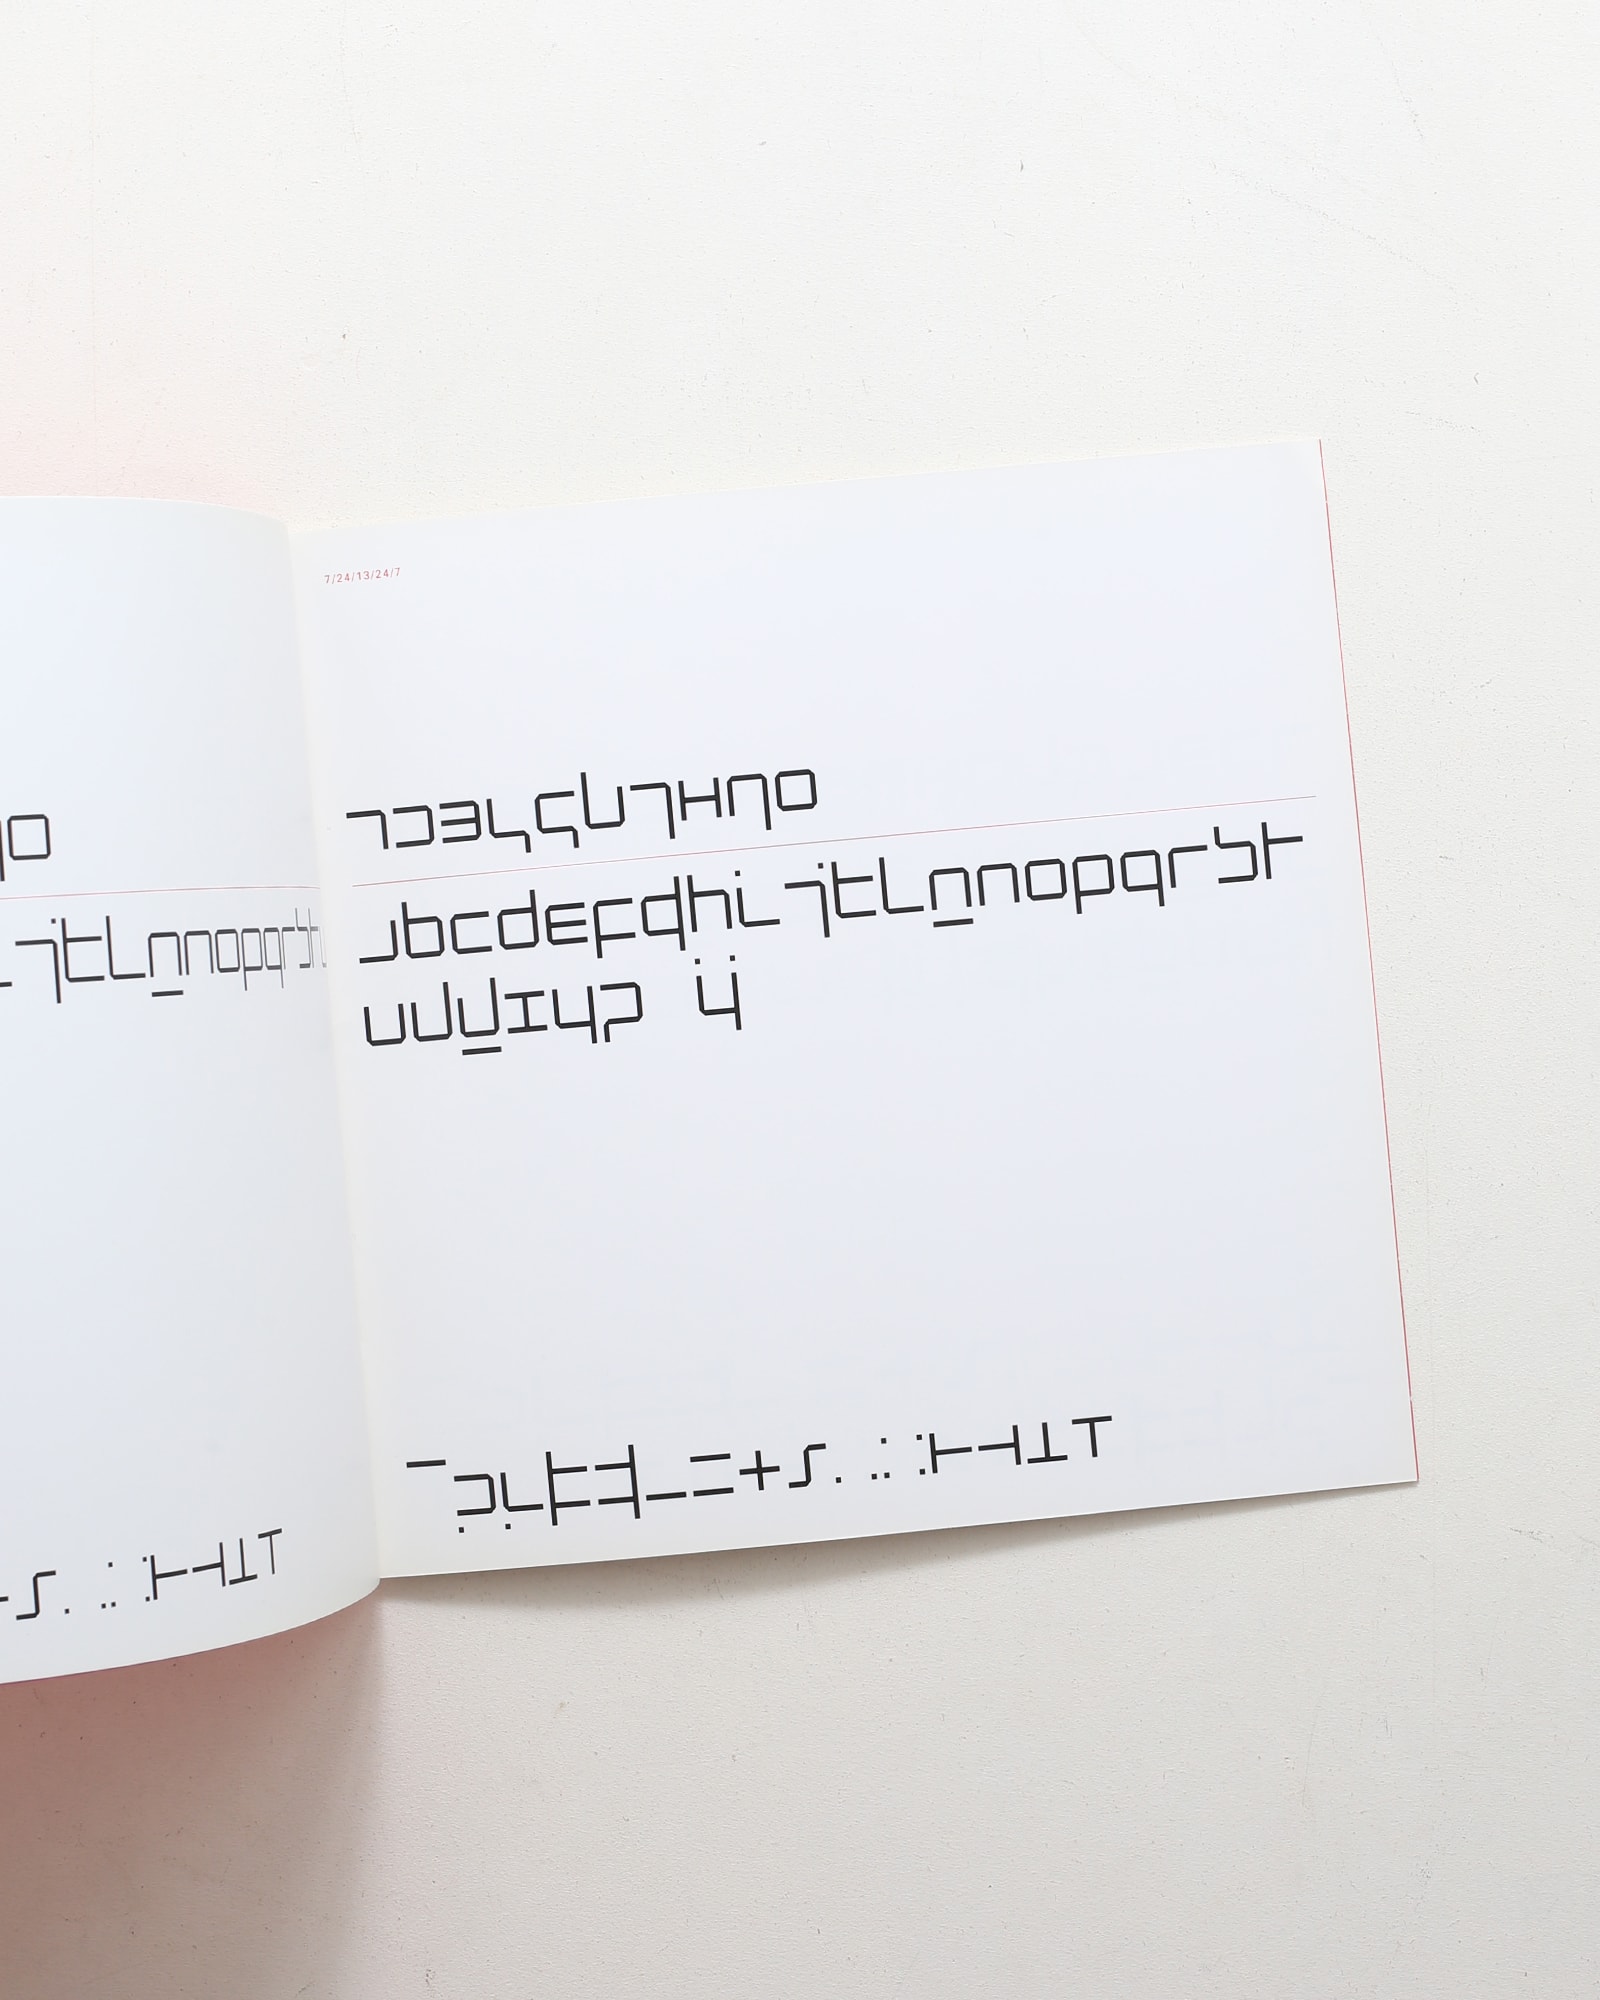 0
jklmnopqrs
7/24/13/24/7
1234567890
abcdefghijklmnopqrst
uvwxyz ÿ
= + .